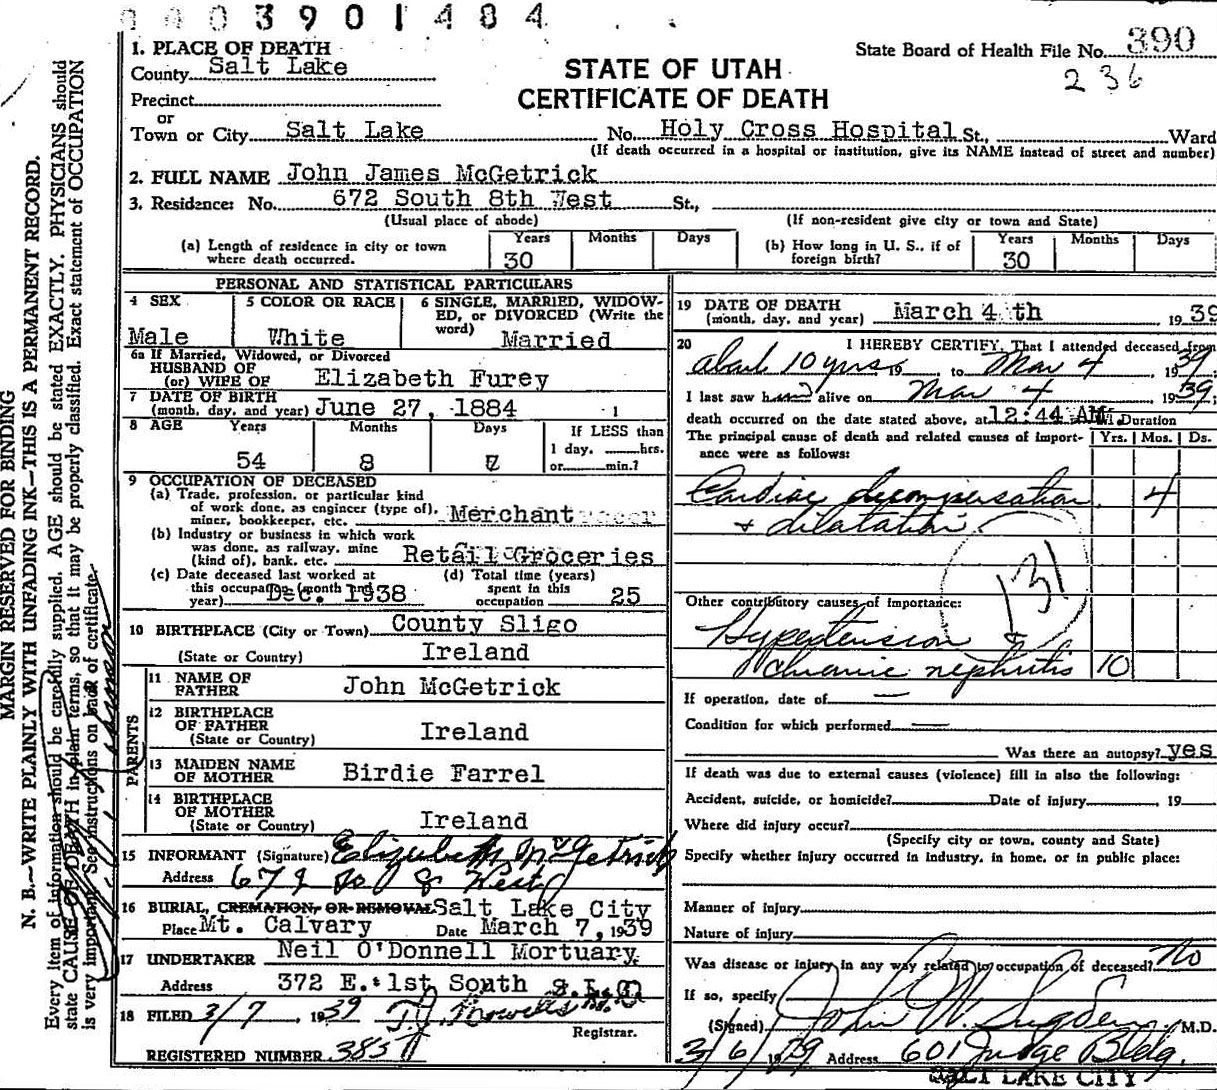 0003901484
1. PLACE OF DEATH
State Board of Health File No. 390
County Salt Lake
236
STATE OF UTAH
CERTIFICATE OF DEATH
Precinct
or
Town or City Salt Lake No. Holy Cross Hospital St., Ward
(If death occurred in a hospital or institution, give its NAME instead of street and number)
2. FULL NAME John James McGetrick
3. Residence: No. 672 South 8th West St.,
(Usual place of abode) (If non-resident give city or town and State)
(a) Length of residence in city or town where death occurred. Years 30 Months Days
(b) How long in U. S., if of foreign birth? Years 30 Months Days
PERSONAL AND STATISTICAL PARTICULARS
4 SEX Male
5 COLOR OR RACE White
6 SINGLE, MARRIED, WIDOW-
ED, or DIVORCED (Write the
word) Married
6a If Married, Widowed, or Divorced
HUSBAND OF
(or) WIFE OF Elizabeth Furey
7 DATE OF BIRTH
(month, day, and year) June 27, 1884
8 AGE Years 54 Months 8 Days 7
If LESS than
1 day, hrs.
or min.?
9 OCCUPATION OF DECEASED
(a) Trade, profession, or particular kind
of work done, as engineer (type of),
miner, bookkeeper, etc. Merchant
(b) Industry or business in which work
was done, as railway, mine
(kind of), bank, etc. Retail Groceries
(c) Date deceased last worked at
this occupation (month and
year) Dec. 1938
(d) Total time (years)
spent in this
occupation 25
10 BIRTHPLACE (City or Town) County Sligo
(State or Country) Ireland
PARENTS
11 NAME OF
FATHER John McGetrick
12 BIRTHPLACE
OF FATHER
(State or Country) Ireland
13 MAIDEN NAME
OF MOTHER Birdie Farrel
14 BIRTHPLACE
OF MOTHER
(State or Country) Ireland
15 INFORMANT (Signature) Elizabeth McGetrick
Address 672 So 8 West
16 BURIAL, CREMATION, OR REMOVAL Salt Lake City
Place Mt. Calvary Date March 7, 1939
17 UNDERTAKER Neil O'Donnell Mortuary.
Address 372 E. 1st South S.L.C.
18 FILED 3/7, 1939
Registrar.
REGISTERED NUMBER 385
19 DATE OF DEATH
(month, day, and year) March 4 th 1939
20 I HEREBY CERTIFY, That I attended deceased from
about 10 yrs, to Mar 4 1939
I last saw him alive on Mar 4 1939;
death occurred on the date stated above, at 12:44 AM. Duration
The principal cause of death and related causes of import-
ance were as follows: Yrs. Mos. Ds.
Cardiac decompensation 4
+ dilatation
131
Other contributory causes of importance:
Hypertension
chronic nephritis 10
If operation, date of
Condition for which performed
Was there an autopsy? yes
If death was due to external causes (violence) fill in also the following:
Accident, suicide, or homicide? Date of injury , 19
Where did injury occur?
(Specify city or town, county and State)
Specify whether injury occurred in industry, in home, or in public place:
Manner of injury
Nature of injury
Was disease or injury in any way related to occupation of deceased? No
If so, specify
(Signed) John W. Sugden, M.D.
3/6/1939 Address 601 Judge Bldg.
SALT LAKE CITY
MARGIN RESERVED FOR BINDING
N. B.—WRITE PLAINLY WITH UNFADING INK—THIS IS A PERMANENT RECORD.
Every item of information should be carefully supplied. AGE should be stated EXACTLY. PHYSICIANS should
state CAUSE OF DEATH in plain terms, so that it may be properly classified. Exact statement of OCCUPATION
is very important. See instructions on back of certificate.